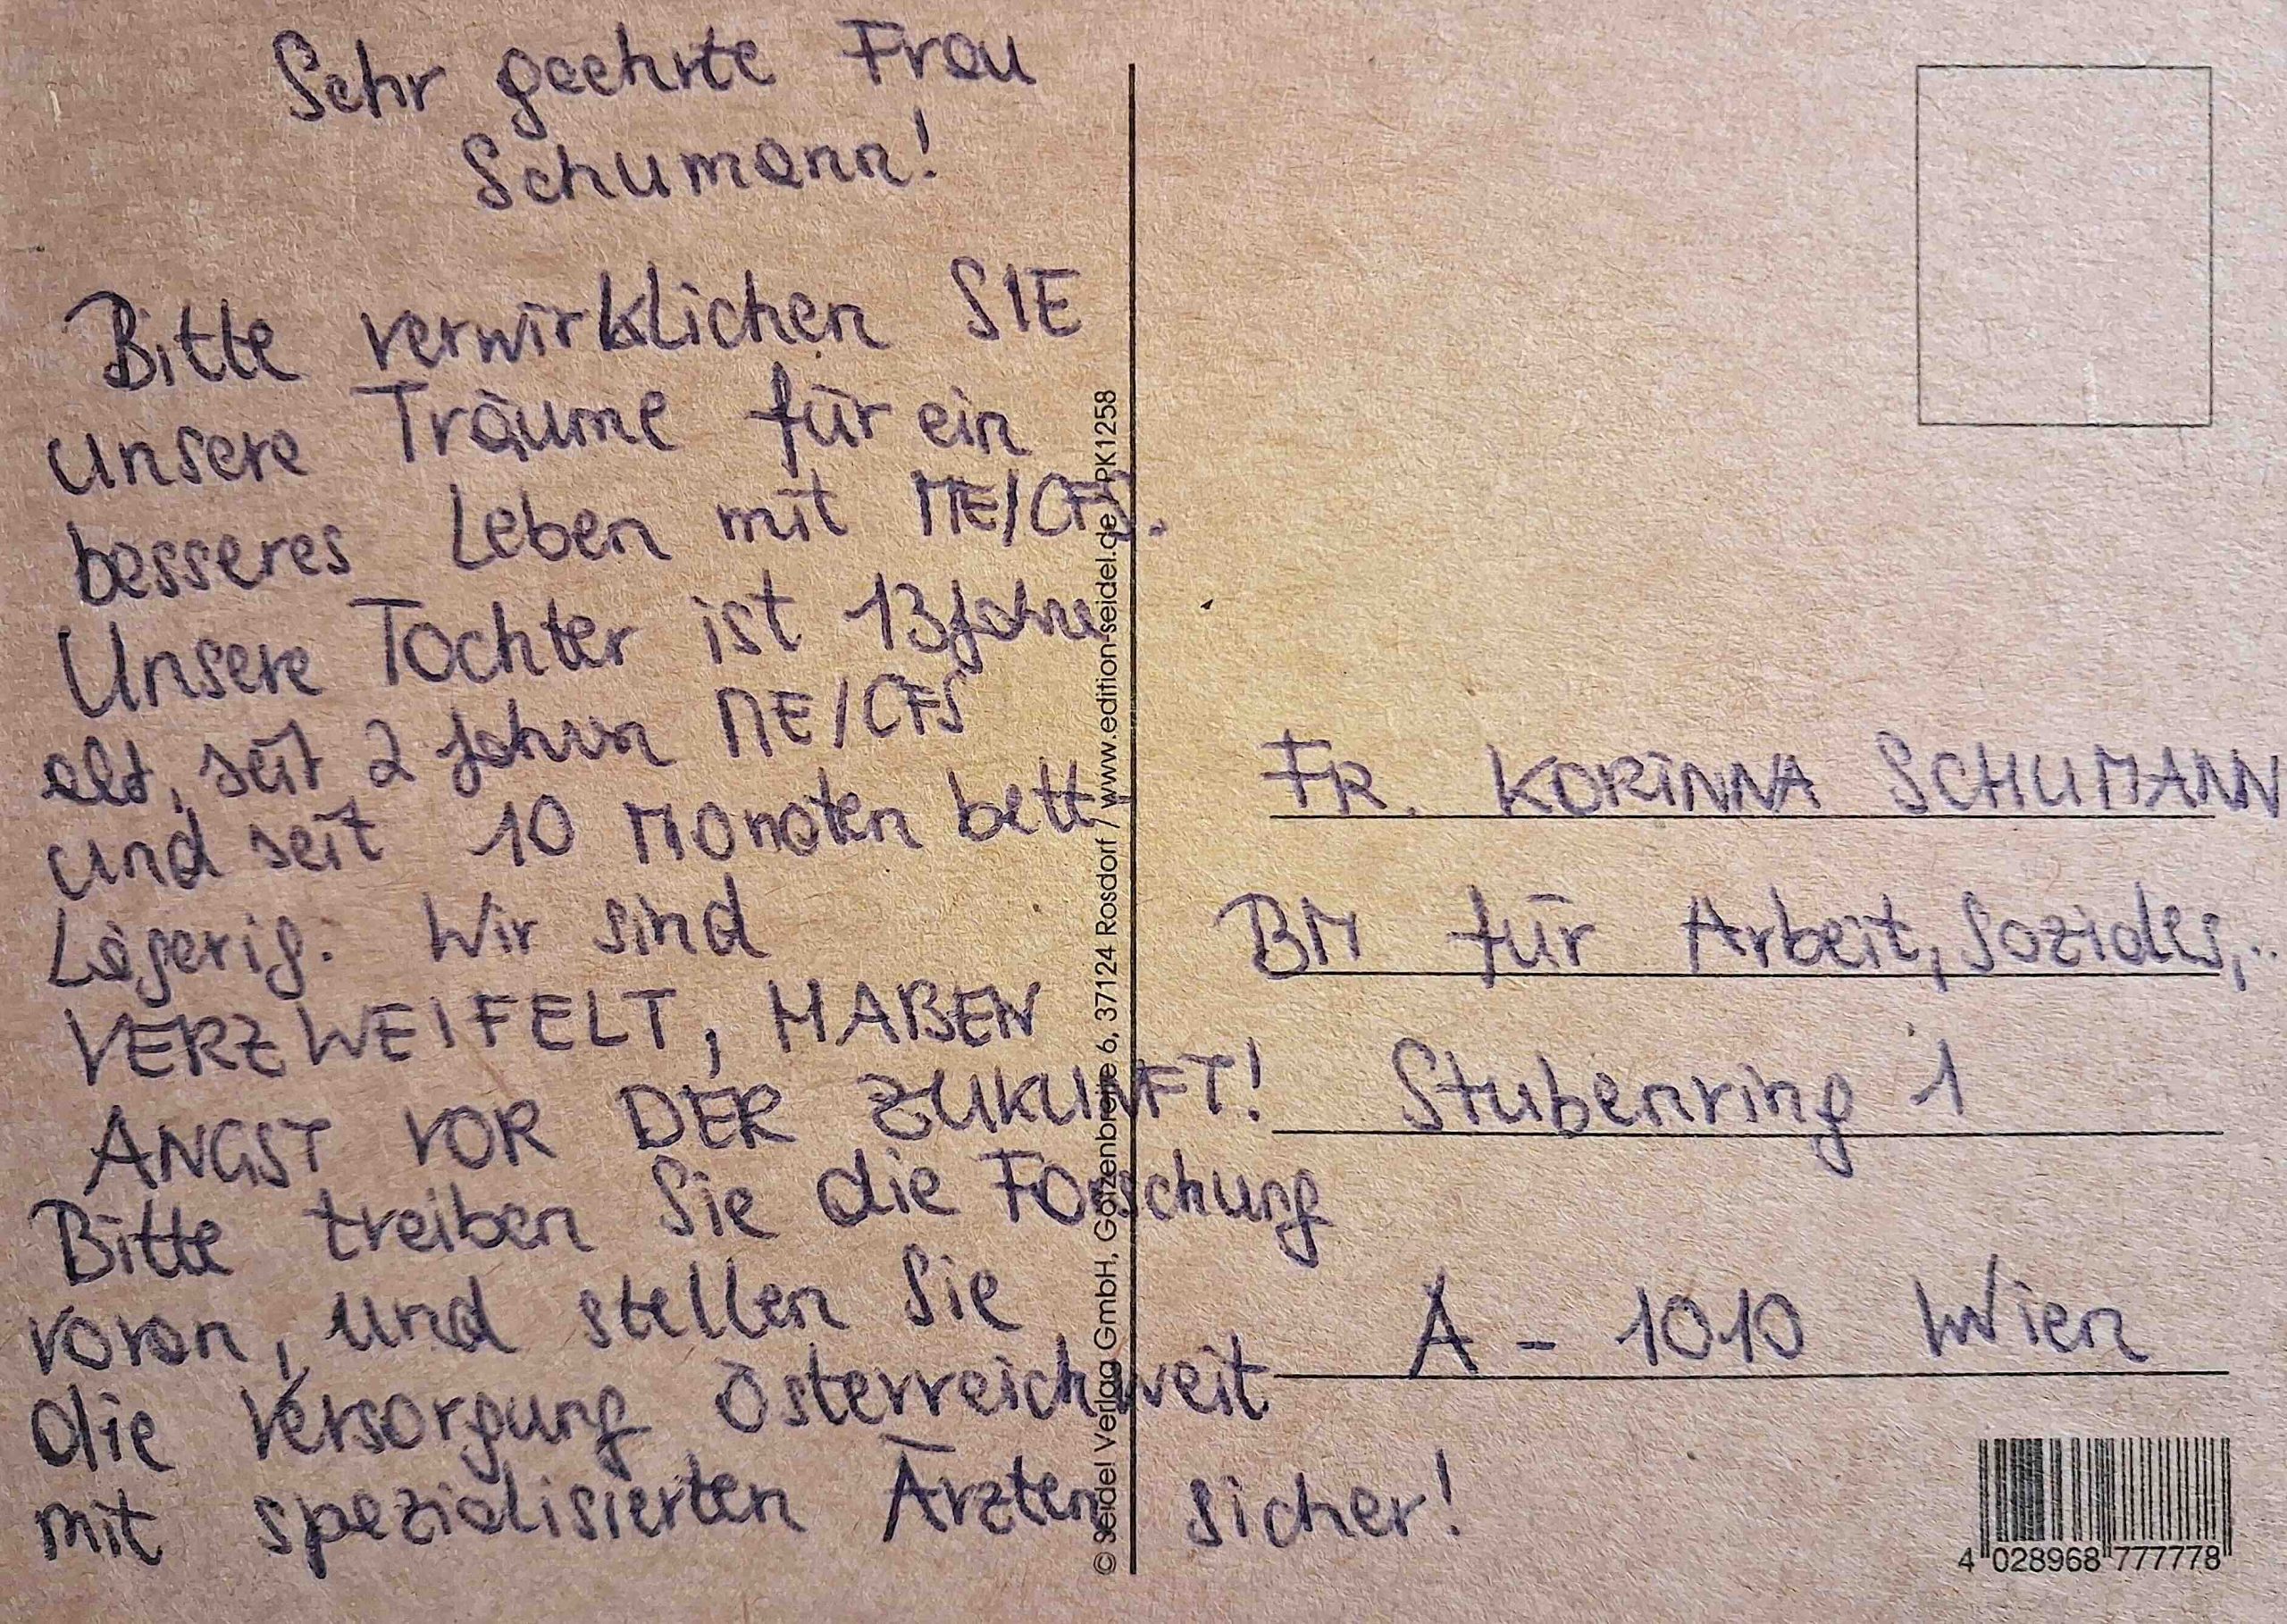 Sehr geehrte Frau
Schumann!
Bitte verwirklichen SIE
unsere Träume für ein
besseres Leben mit ME/CFS.
Unsere Tochter ist 13 Jahre
alt, seit 2 Jahren ME/CFS
und seit 10 Monaten bett-
Lägerig. Wir sind
VERZWEIFELT, HABEN
ANGST VOR DER ZUKUNFT!
Bitte treiben Sie die Forschung
voran, und stellen Sie
die Versorgung österreichweit
mit spezialisierten Ärzten sicher!
© Seidel Verlag GmbH, Götzenbreite 6, 37124 Rosdorf / www.edition-seidel.de PK1258
FR. KORINNA SCHUMANN
BM für Arbeit, Soziales,..
Stubenring 1
A - 1010 Wien
4 028968 777778